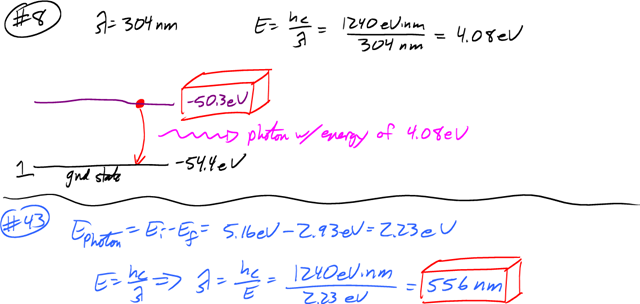 #8 λ = 304 nm E = hc/λ = 1240 eV·nm/304 nm = 4.08 eV
-50.3 eV
photon w/ energy of 4.08 eV
1 gnd state -54.4 eV
#43 Ephoton = Ei - Ef = 5.16 eV - 2.93 eV = 2.23 eV
E = hc/λ ⇒ λ = hc/E = 1240 eV·nm/2.23 eV = 556 nm